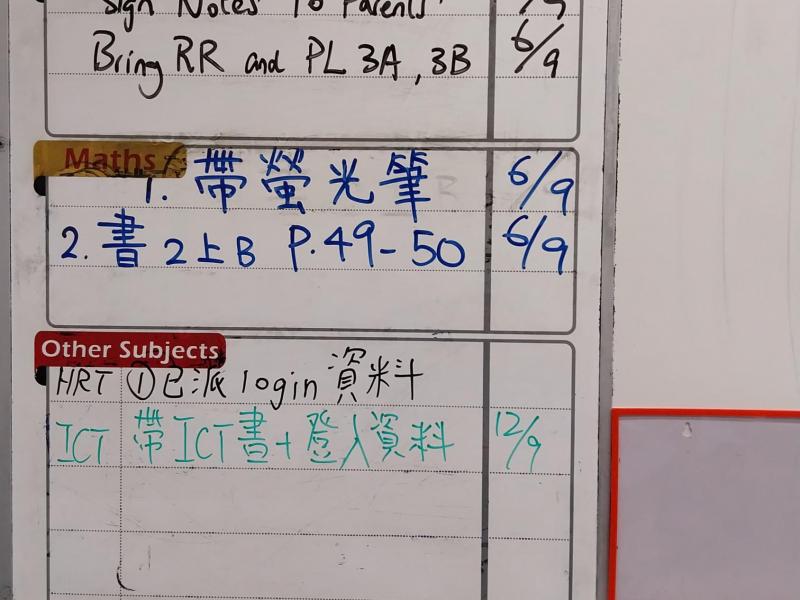 Sign Notes To Parents
Bring RR and PL 3A, 3B 6/9
Maths
1. 帶螢光筆 6/9
2. 書 2上B P.49-50 6/9
Other Subjects
HRT ①已派login資料
ICT 帶ICT書+登入資料 12/9